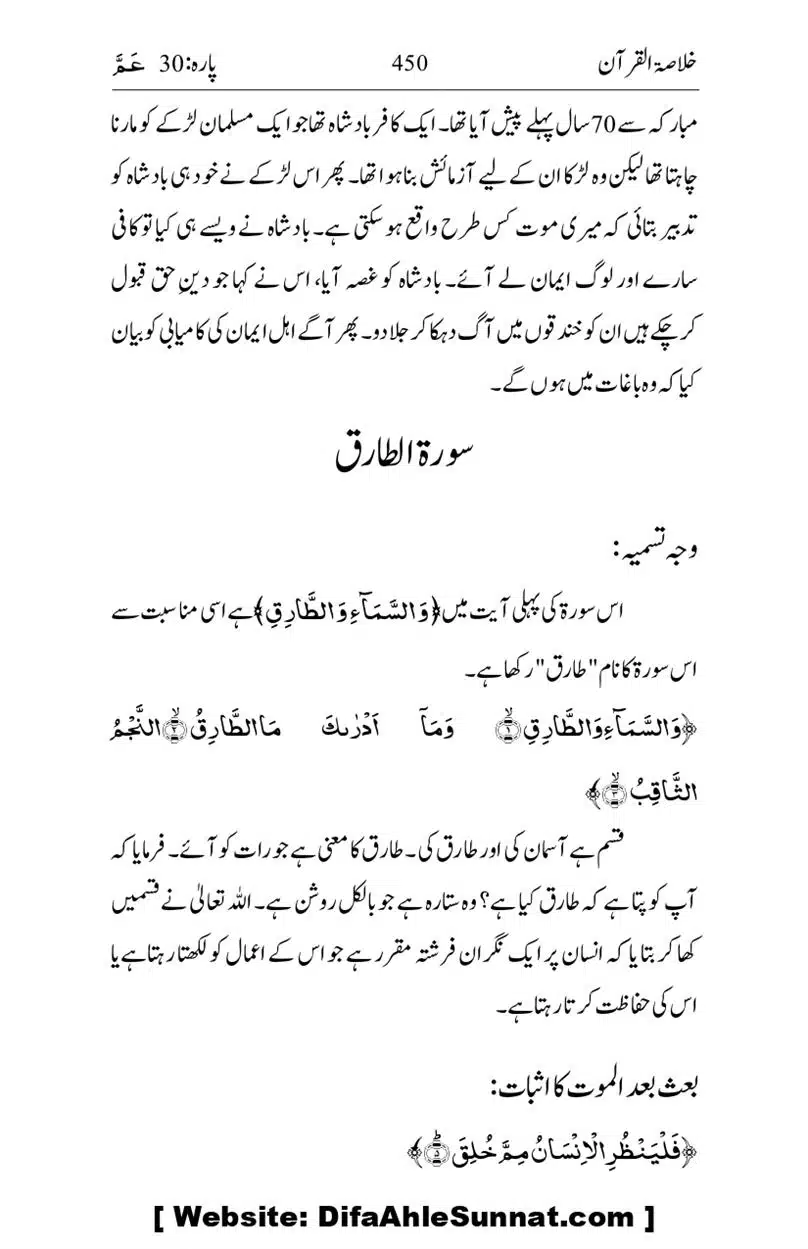 خلاصۃ القرآن 450 پارہ:30 عَمَّ
مبارکہ سے 70 سال پہلے پیش آیا تھا۔ ایک کافر بادشاہ تھا جو ایک مسلمان لڑکے کو مارنا
چاہتا تھا لیکن وہ لڑکا ان کے لیے آزمائش بنا ہوا تھا۔ پھر اس لڑکے نے خود ہی بادشاہ کو
تدبیر بتائی کہ میری موت کس طرح واقع ہو سکتی ہے۔ بادشاہ نے ویسے ہی کیا تو کافی
سارے اور لوگ ایمان لے آئے۔ بادشاہ کو غصہ آیا، اس نے کہا جو دینِ حق قبول
کر چکے ہیں ان کو خندقوں میں آگ دہکا کر جلا دو۔ پھر آگے اہل ایمان کی کامیابی کو بیان
کیا کہ وہ باغات میں ہوں گے۔
سورۃ الطارق
وجہ تسمیہ:
اس سورۃ کی پہلی آیت میں ﴿وَالسَّمَآءِ وَالطَّارِقِ﴾ ہے اسی مناسبت سے
اس سورۃ کا نام "طارق" رکھا ہے۔
﴿وَالسَّمَآءِ وَالطَّارِقِ ۙ﴿۱﴾ وَمَآ اَدْرٰىكَ مَا الطَّارِقُ ۙ﴿۲﴾ النَّجْمُ
الثَّاقِبُ ۙ﴿۳﴾﴾
قسم ہے آسمان کی اور طارق کی۔ طارق کا معنی ہے جو رات کو آئے۔ فرمایا کہ
آپ کو پتا ہے کہ طارق کیا ہے؟ وہ ستارہ ہے جو بالکل روشن ہے۔ اللہ تعالیٰ نے قسمیں
کھا کر بتایا کہ انسان پر ایک نگران فرشتہ مقرر ہے جو اس کے اعمال کو لکھتا رہتا ہے یا
اس کی حفاظت کرتا رہتا ہے۔
بعث بعد الموت کا اثبات:
﴿فَلْيَنْظُرِ الْاِنْسَانُ مِمَّ خُلِقَ ؕ﴿۵﴾﴾
[ Website: DifaAhleSunnat.com ]